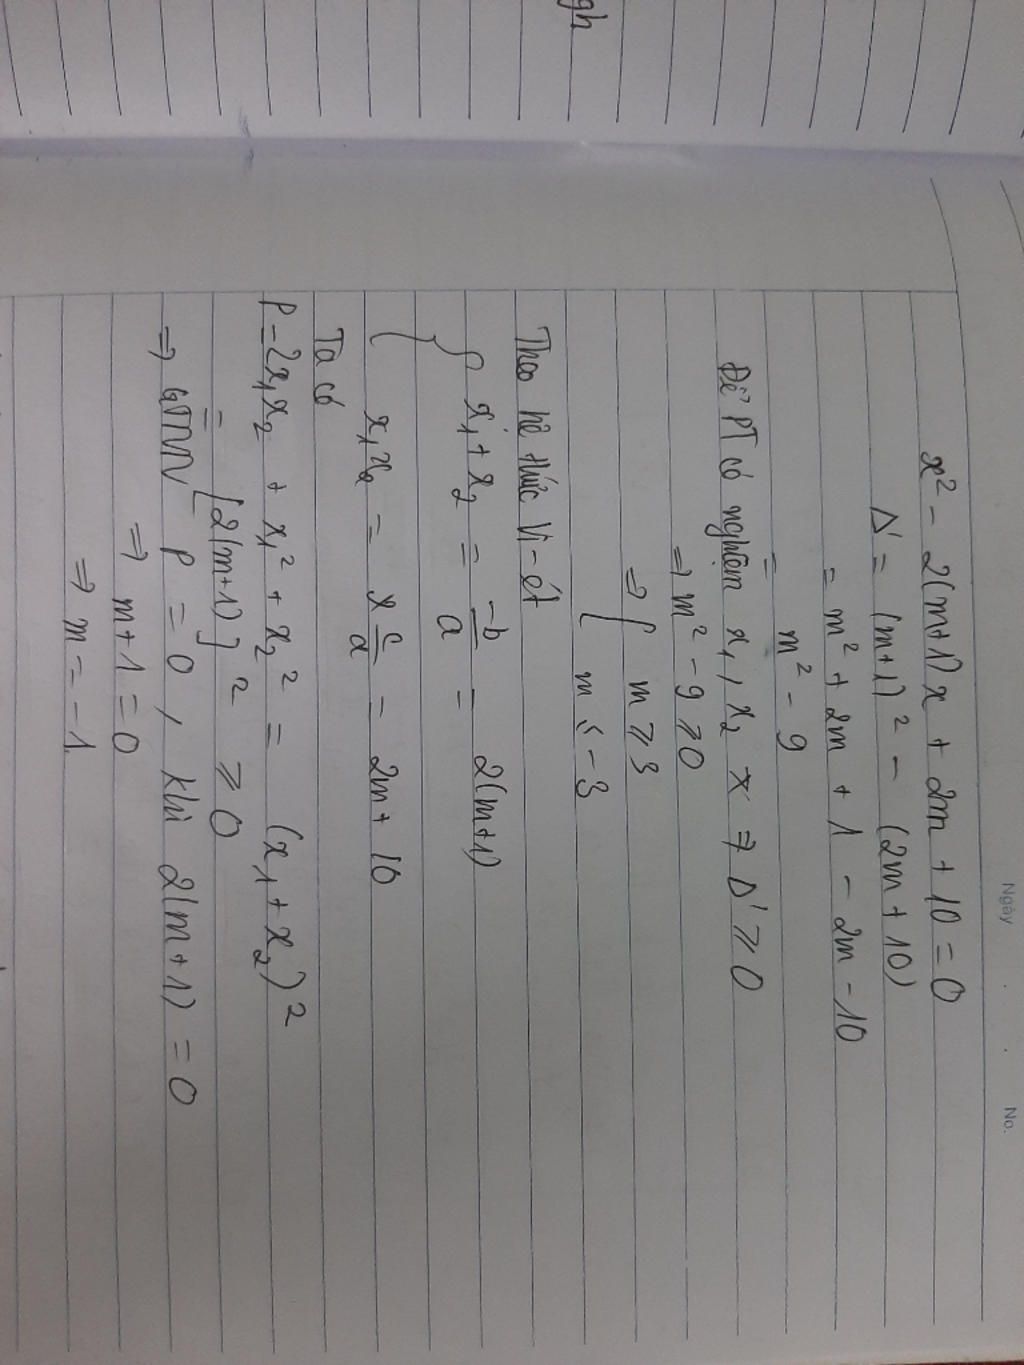 gh
Ngày
No.
x² - 2(m+1)x + 2m + 10 = 0
Δ' = (m+1)² - (2m+10)
= m² + 2m + 1 - 2m - 10
= m² - 9
Để PT có nghiệm x₁, x₂ ⇒ Δ' ≥ 0
⇒ m² - 9 ≥ 0
⇒ [ m ≥ 3
m ≤ -3
Theo hệ thức Vi-ét
{ x₁ + x₂ = -b/a = 2(m+1)
x₁x₂ = c/a = 2m + 10
Ta có
P = 2x₁x₂ + x₁² + x₂² = (x₁ + x₂)²
= [2(m+1)]² ≥ 0
⇒ GTNN P = 0, khi 2(m+1) = 0
⇒ m+1 = 0
⇒ m = -1